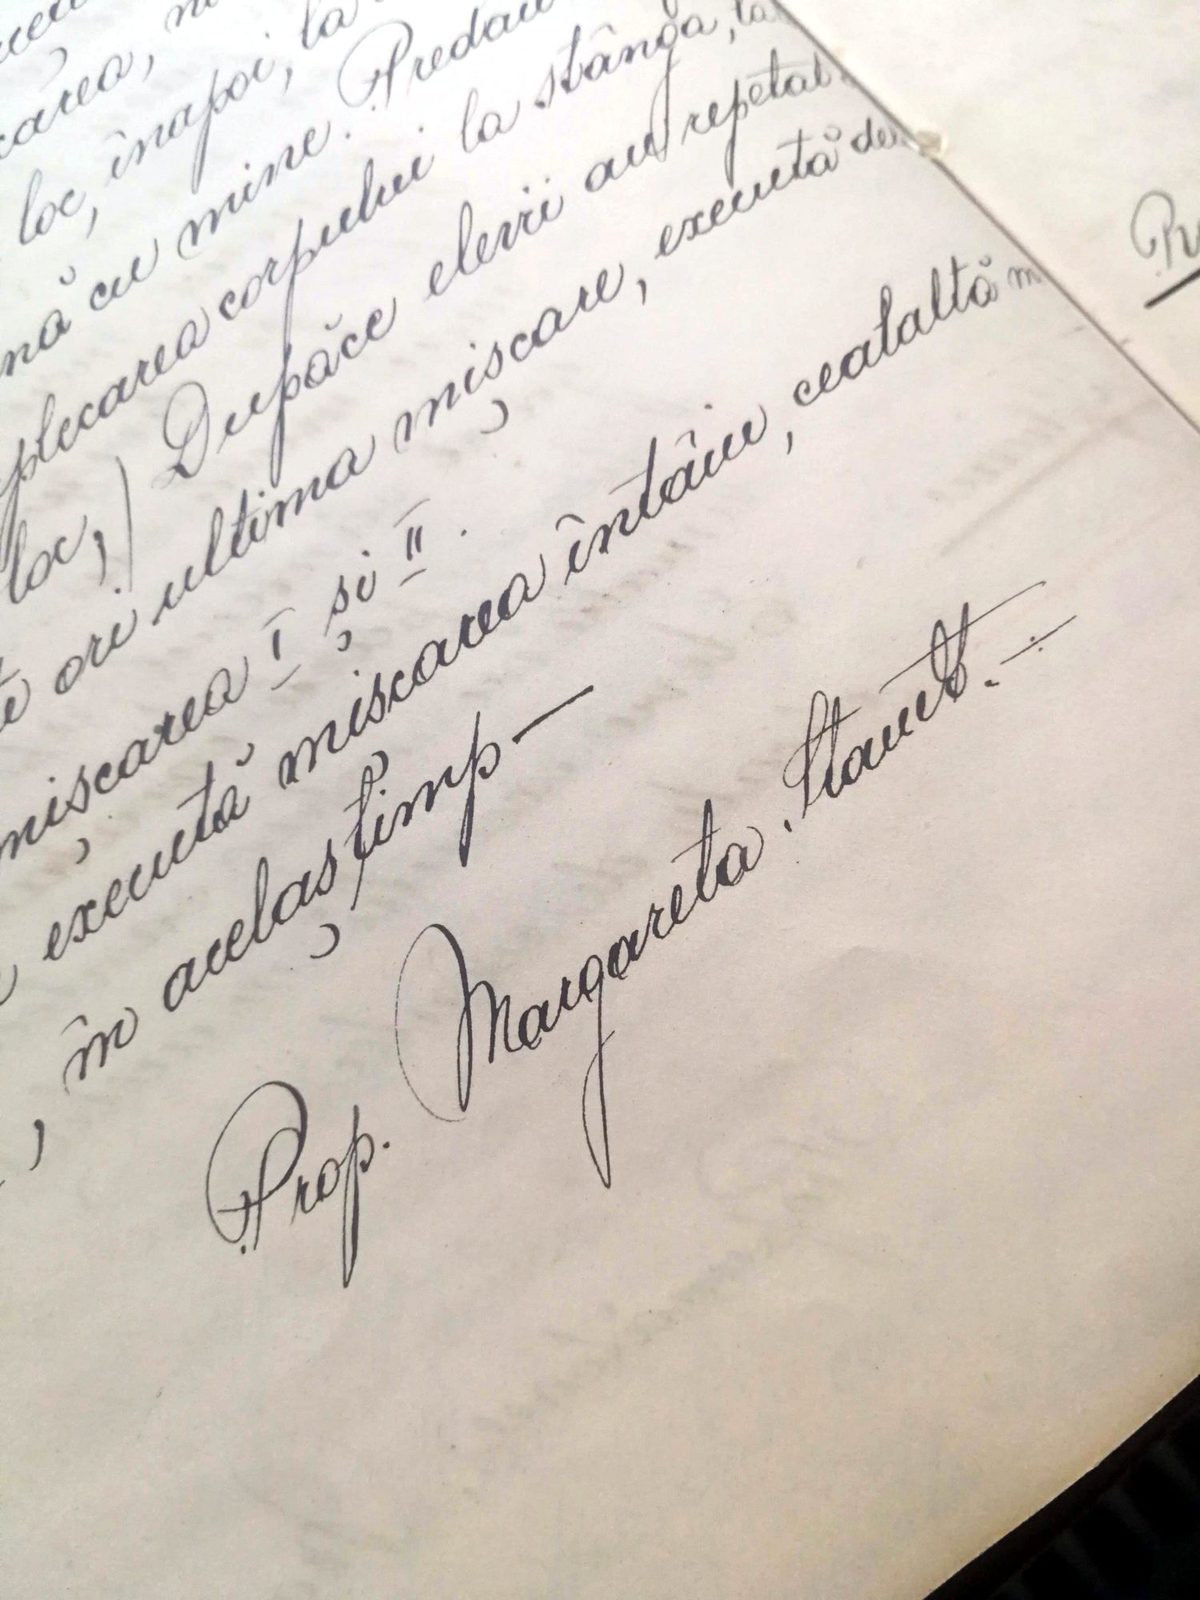 loc, înapoi, la
nă cu mine. Predau
plecarea corpului la stânga, la
loc,) Dupăce elevii au repetat
ori ultima mișcare, execută de
mișcarea I și II.
execută mișcarea întâiu, cealaltă m
, în acelaș timp —
Prop. Margareta
Pr